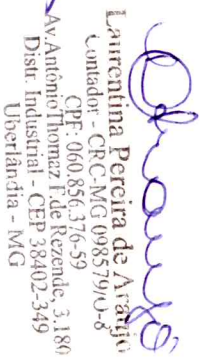 Laurentina Pereira de Araújo
Contador - CRC-MG 098579/O-8
CPF: 060.856.376-59
Av. Antônio Thomaz F. de Rezende, 3.180
Distr. Industrial - CEP 38402-349
Uberlândia - MG